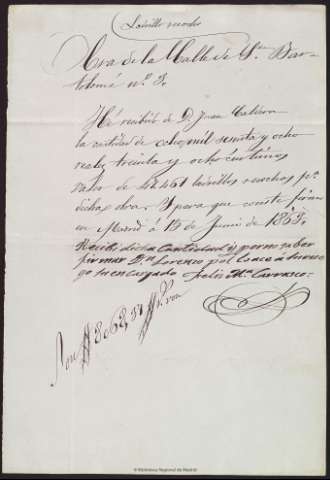 Ladrillo recocho
Obra de la Calle de Sn. Bar-
tolomé nº 8.
He recibido de D. Juan
la cantidad de ocho mil sesenta y ocho
reales treinta y ocho centimos
valor de 42.461 ladrillos recochos pa.
dicha obra. Y para que conste firmo
en Madrid á 15 de Junio de 1863.
Recibi dicha Cantidad y por no saber
firmar Dn. Lorenzo lo aco á su rue
go su encargado Felix Ma. Carrasco.
Son 8068,38 Rs. vn
Biblioteca Regional de Madrid